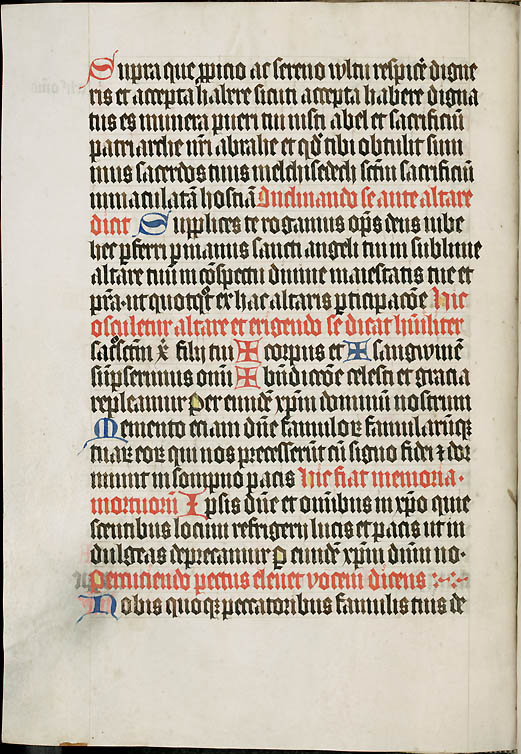 Supra que ꝓpicio ac sereno wltu respicẽ digne
ris et accepta habere sicuti accepta habere digna
tus es munera pueri tui iusti abel et sacrificiũ
patriarche nr̃i abrahe et qđ tibi obtulit sum
mus sacerdos tuus melchisedech sctm̃ sacrificiũ
immaculatã hostiã Inclinando se ante altare
dicit Supplices te rogamus op̃s deus iube
hec ꝑferri ꝑ manus sancti angeli tui in sublime
altare tuũ in cõspectu diuine maiestatis tue et
pr̃a· ut quotqͦt ex hac altaris ꝑticipacõe Hic
osculetur altare et erigendo se dicat hũiliter
sacͦsctm̃ x̃ filij tui ✠ corpus et ✠ sangwinẽ
sũpserimus om̃i ✠ bñdiccõe celesti et gracia
repleamur Per eundẽ xp̃m dominũ nostrum
Memento eciam dñe famuloꝝ famularũqꝫ
tuaꝝ eoꝝ qui nos precesserũt cũ signo fidei ⁊ dor
miunt in sompno pacis Hic fiat memoria·
mortuorũ Ipsis dñe et om̃ibus in xp̃o quie
scentibus locum refrigerij lucis et pacis ut in
dulgeas deprecamur ꝑ eundẽ xp̃m dñm no·
Percuciendo pectus eleuet vocem dicens
Nobis quoqꝫ peccatoribus famulis tuis de